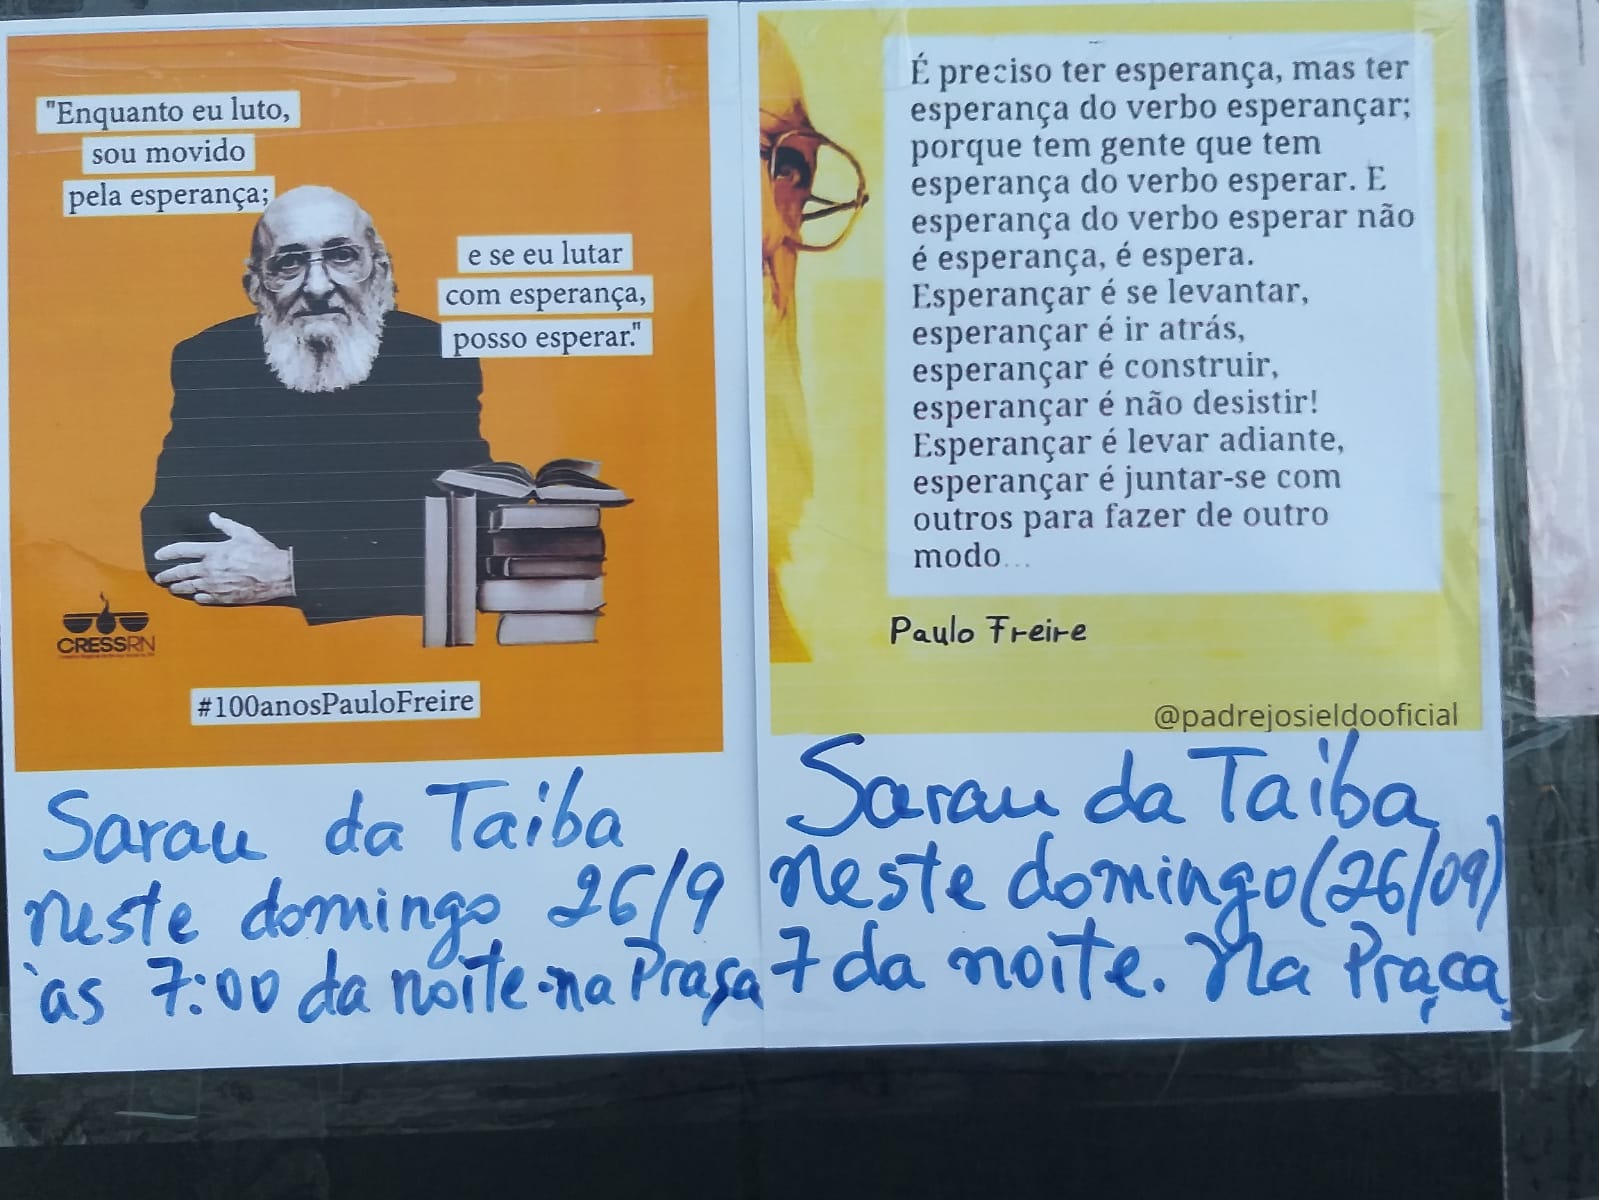 "Enquanto eu luto,
sou movido
pela esperança;
e se eu lutar
com esperança,
posso esperar."
CRESSRN
#100anosPauloFreire
Sarau da Taiba
neste domingo 26/9
às 7:00 da noite-na Praça
É preciso ter esperança, mas ter
esperança do verbo esperançar;
porque tem gente que tem
esperança do verbo esperar. E
esperança do verbo esperar não
é esperança, é espera.
Esperançar é se levantar,
esperançar é ir atrás,
esperançar é construir,
esperançar é não desistir!
Esperançar é levar adiante,
esperançar é juntar-se com
outros para fazer de outro
modo...
Paulo Freire
@padrejosieldooficial
Sarau da Taiba
neste domingo (26/09)
7 da noite. Na Praça